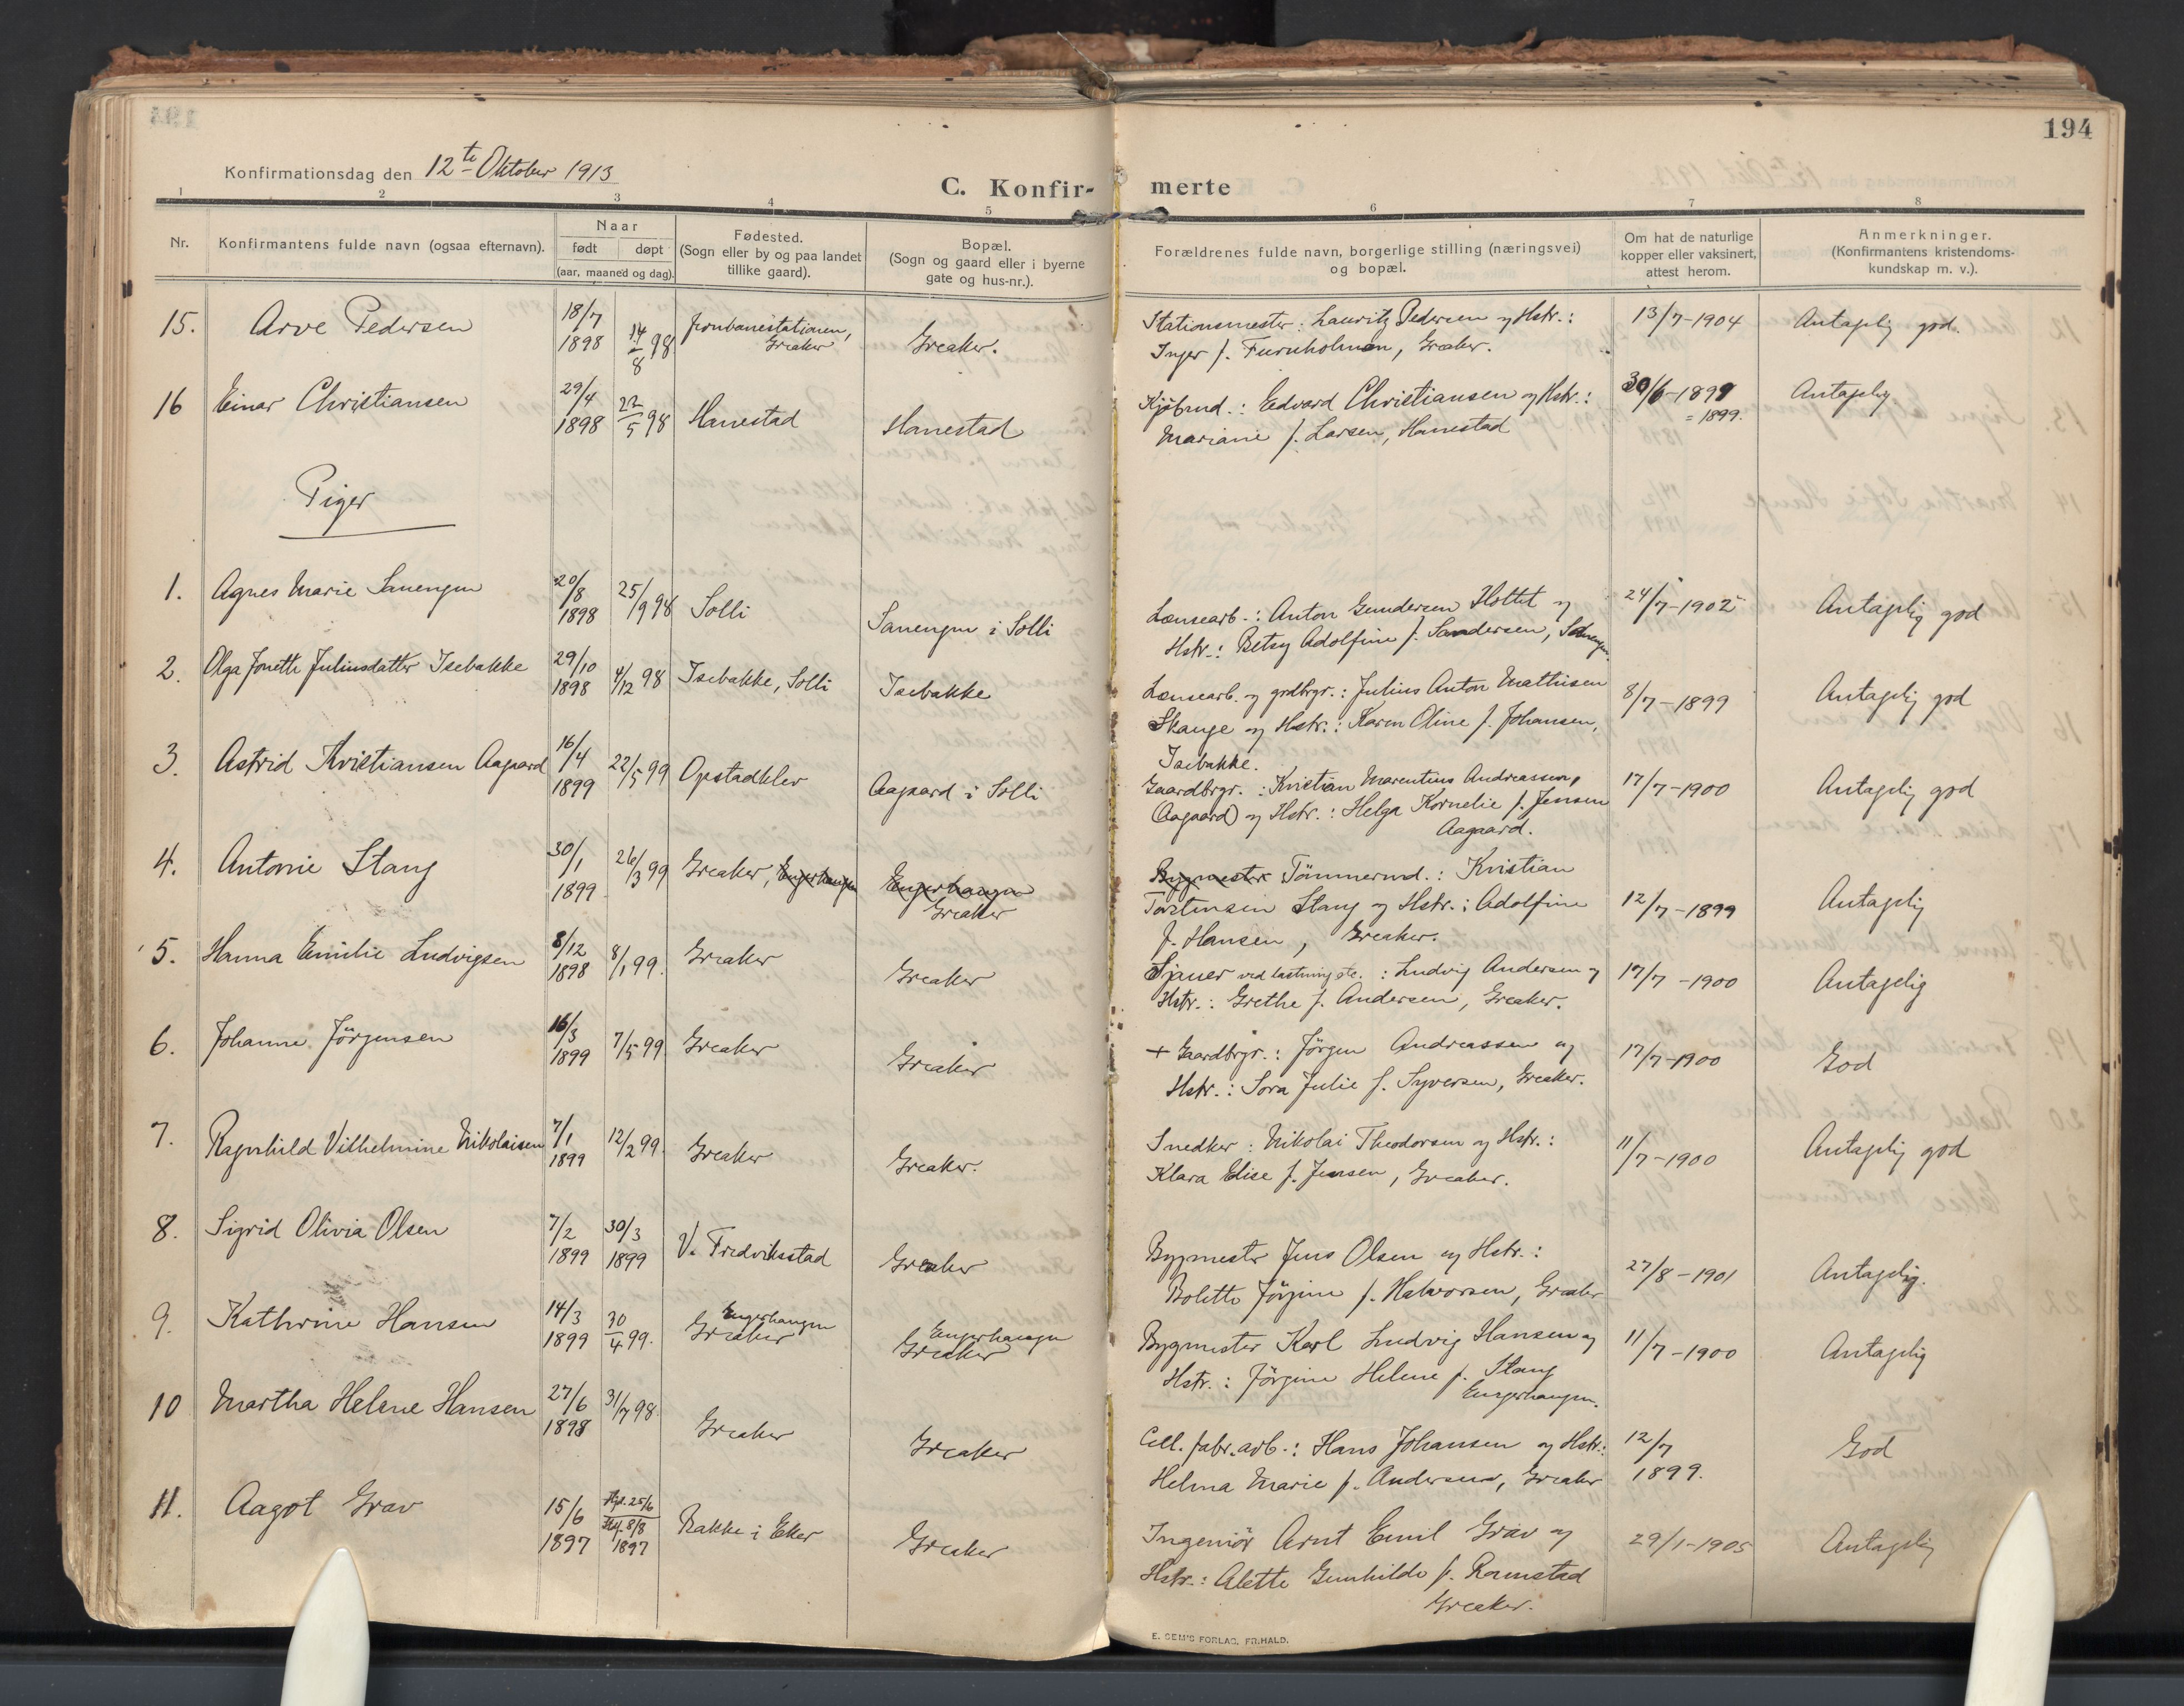 194
Konfirmationsdag den 12te Oktober 1913
C. Konfir- merte
1 2 3 4 5 6 7 8
Nr.
Konfirmantens fulde navn (ogsaa efternavn).
Naar
født døpt
(aar, maaned og dag).
Fødested.
(Sogn eller by og paa landet
tillike gaard).
Bopæl.
(Sogn og gaard eller i byerne
gate og hus-nr.).
Forældrenes fulde navn, borgerlige stilling (næringsvei)
og bopæl.
Om hat de naturlige
kopper eller vaksinert,
attest herom.
Anmerkninger.
(Konfirmantens kristendoms-
kundskap m. v.).
15. Arve Pedersen 18/7 1898 14/8 98 Jernbanestationen, Greaker Greaker.
Stationsmester: Lauritz Pedersen og Hstr.:
Inger f. Furuholmen, Greaker.
13/7-1904 Antagelig god.
16 Einar Christiansen 29/4 1898 22/5 98 Hanestad Hanestad
Kjøbmd.: Edvard Christiansen og Hstr.:
Mariane f. Larsen, Hanestad
30/6-1899
= 1899.
Antagelig
Piger
1. Agnes Marie Sanengen 20/8 1898 25/9 98 Solli Sanengen i Solli
Lænsearb.: Anton Gundersen Hottet og
Hstr.: Betsy Adolfine f. Sandersen, Sanengen.
24/7-1902 Antagelig god
2. Olga Jonette Juliusdatter Isebakke 29/10 1898 4/12 98 Isebakke, Solli Isebakke
Lænsearb. og grdbrgr.: Julius Anton Mathisen
Skauge og Hstr.: Karen Oline f. Johansen,
Isebakke.
8/7-1899 Antagelig god
3. Astrid Kristiansen Aagaard 16/4 1899 22/5 99 Opstadklev Aagaard i Solli
Gaardbrgr.: Kristian Marentius Andreassen,
(Aagaard) og Hstr.: Helga Kornelie f. Jensen
Aagaard.
17/7-1900 Antagelig god
4. Antonie Stang 30/1 1899. 26/3 99 Greaker, Engerhaugen Engerhaugen
Greaker
Bygmester Tömmermd.: Kristian
Torstensen Stang og Hstr.: Adolfine
f. Hansen, Greaker.
12/7-1899 Antagelig
5. Hanna Emilie Ludvigsen 8/12 1898 8/1 99. Greaker Greaker
Sjauer ved lastning etc.: Ludvig Andersen og
Hstr.: Grethe f. Andersen, Greaker.
17/7-1900 Antagelig
6. Johanne Jörgensen 16/3 1899 7/5 99 Greaker Greaker
+ Gaardbrgr.: Jörgen Andreassen og
Hstr.: Sora Julie f. Syversen, Greaker.
17/7-1900 God
7. Ragnhild Vilhelmine Nikolaisen 7/1 1899 12/2 99. Greaker Greaker.
Snedker: Nikolai Theodorsen og Hstr.:
Klara Elise f. Jensen, Greaker.
11/7-1900 Antagelig god
8. Sigrid Olivia Olsen 7/2 1899 30/3 1899 V. Fredriksstad Greaker
Bygmester Jens Olsen og Hstr.:
Bolette Jörgine f. Halvorsen, Greaker
27/8-1901 Antagelig.
9. Kathrine Hansen 14/3 1899 30/4 99. Engerhaugen
Greaker Engerhaugen
Greaker
Bygmester Karl Ludvig Hansen og
Hstr.: Jörgine Helene f. Stang
Engerhaugen.
11/7-1900 Antagelig
10 Martha Helene Hansen 27/6 1898 31/7 98. Greaker Greaker
Cell. fabr. arb.: Hans Johansen og Hstr.:
Helma Marie f. Andersen, Greaker
12/7
1899.
God
11. Aagot Grav 15/6 1897 Hjd. 25/6
8/8
1897
Bakke i Eker Greaker
Ingeniör Arnt Emil Grav og
Hstr.: Alette Gunhilde f. Ramstad
Greaker.
29/1-1905 Antagelig
E. SEM'S FORLAG, FR.HALD.